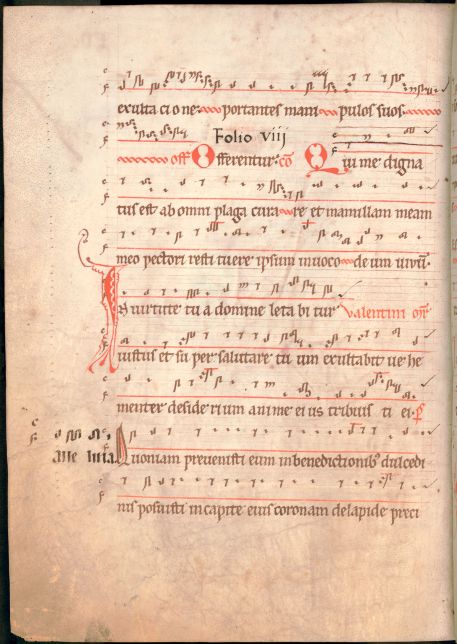 exulta ci o ne portantes mani pulos suos
Folio viij
off Offerentur co Qui me digna
tus est ab omni plaga cura re et mamillam meam
meo pectori resti tuere ipsum invoco de um uiuū
In uirtute tu a domine leta bi tur Valentini
iustus et su per salutare tu um exultabit ue he
menter deside rium anime ei us tribuis ti ei
alle luia Quoniam preuenisti eum in benedictionib dulcedi
nis posuisti in capite eius coronam de lapide preci